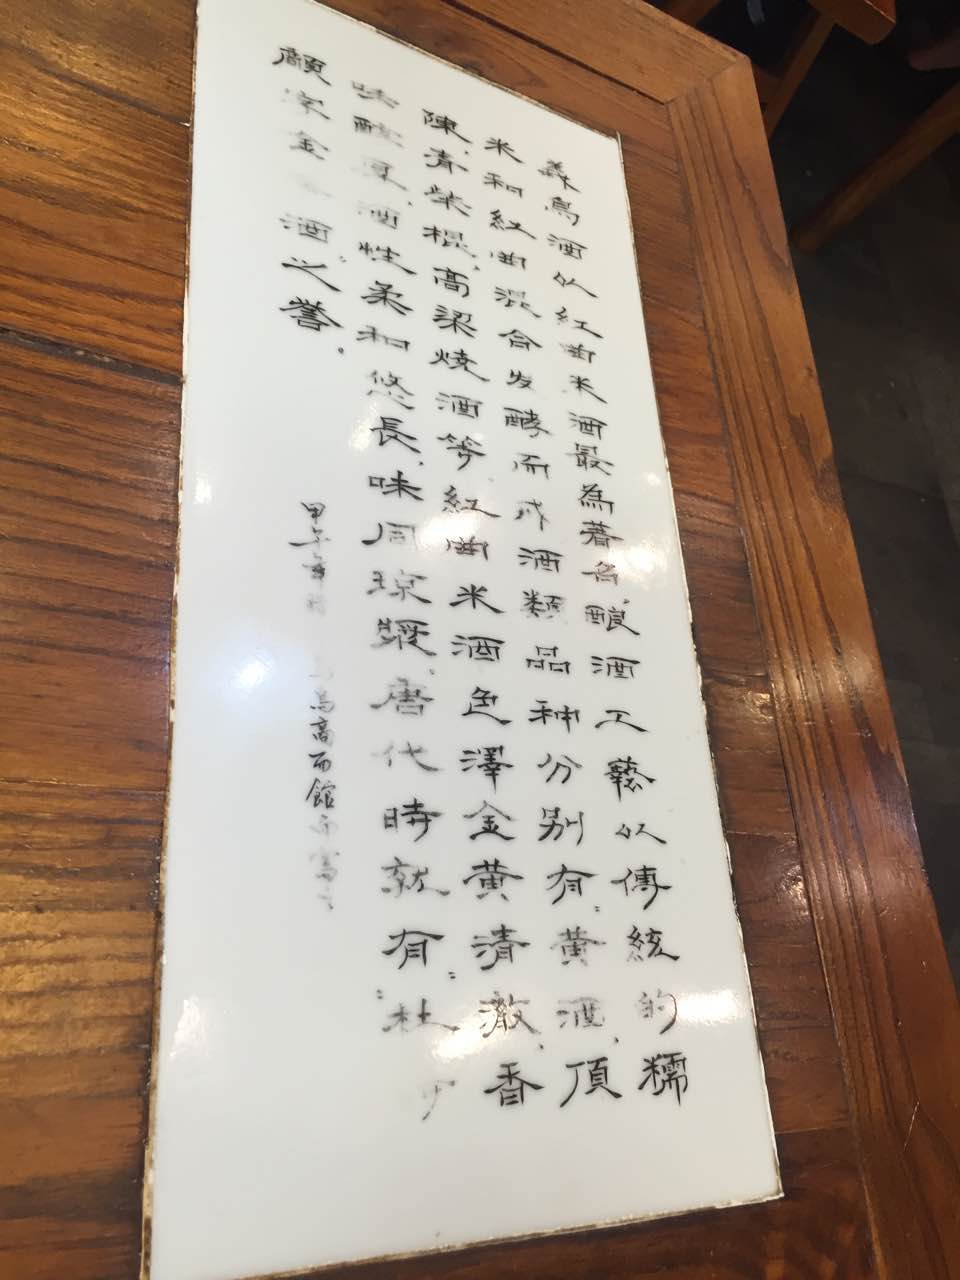 義烏酒以紅曲米酒最為著名,釀酒工藝以傳統的糯
米和紅曲混合发酵而成酒類品种分别有:黄酒、頂
陳、青柴棍、高梁燒酒等,紅曲米酒色澤金黄清澈、香
醇厚,酒性柔和悠長,味同琼漿,唐代時就有:杜
顏字金酒之誉。
甲午年 烏高面館 寫之